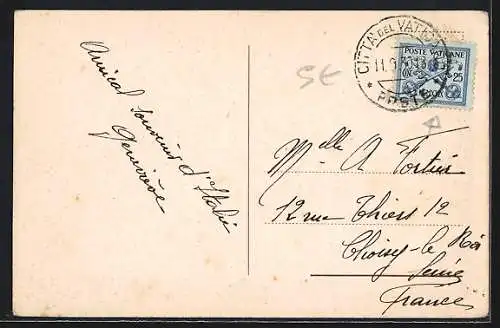 Amical souvenir d'Italie
Geneviève
CITTA' DEL VATICANO
POSTE
POSTE VATICANE
25
5€
Melle A Fortier
12 rue Thiers 12
Choisy-le Roi
Seine
France